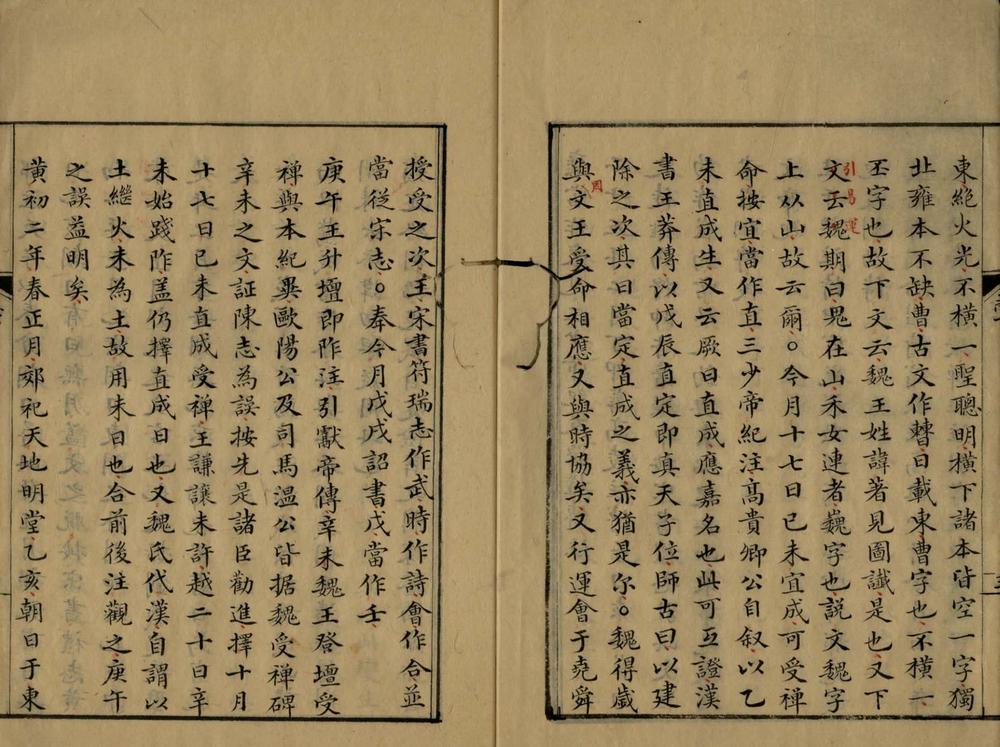 東絶火光不横一聖聰明横下諸本皆空一字獨
北雍本不缺曹古文作𣍘日載東曹字也不横一
丕字也故下文云魏王姓諱著見圖讖是也又下
文云魏期曰鬼在山禾女連者巍字也説文魏字
上从山故云爾○今月十七日已未宜成可受禪
命按宜當作直三少帝紀注高貴卿公自叙以乙
未直成生又云厥日直成應嘉名也此可互證漢
書王莽傳以戊辰直定即真天子位師古曰以建
除之次其日當定直成之義亦猶是尔○魏得歳
與文王受命相應又與時協矣又行運會于堯舜
授受之次王宋書符瑞志作武時作詩會作合並
當從宋志○奉今月戊戌詔書戊當作壬
庚午王升壇即阼注引獻帝傳辛未魏王登壇受
禪與本紀異歐陽公及司馬温公皆据魏受禪碑
辛未之文証陳志為誤按先是諸臣勸進擇十月
十七日已未直成受禪王謙讓未許越二十日辛
未始踐阼盖仍擇直成日也又魏氏代漢自謂以
土繼火未為土故用未日也合前後注觀之庚午
之誤益明矣
黄初二年春正月郊祀天地明堂乙亥朝日于東